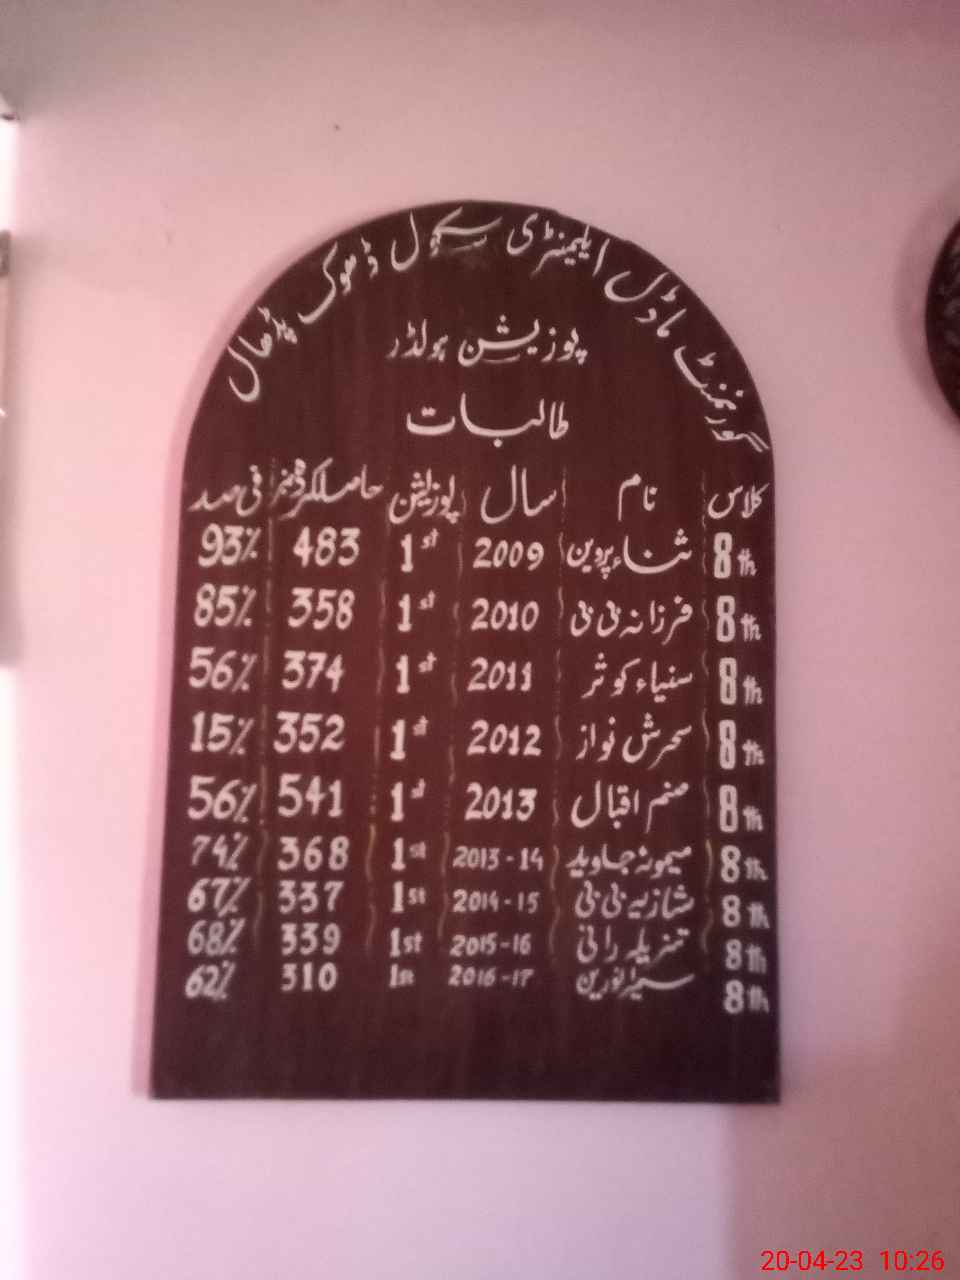 گورنمنٹ ماڈل ایلیمنٹری سکول ڈھوک پڈھال
پوزیشن ہولڈر
طالبات
کلاس نام سال پوزیشن حاصلکردہ نمبر فی صد
8th ثناء پروین 2009 1st 483 93%
8th فرزانہ بی بی 2010 1st 358 85%
8th سنیاء کوثر 2011 1st 374 56%
8th سحرش نواز 2012 1st 352 15%
8th صنم اقبال 2013 1st 541 56%
8th میمونہ جاوید 2013-14 1st 368 74%
8th شازیہ بی بی 2014-15 1st 337 67%
8th تنزیلہ رانی 2015-16 1st 339 68%
8th سمیرا نورین 2016-17 1st 310 62%
20-04-23 10:26